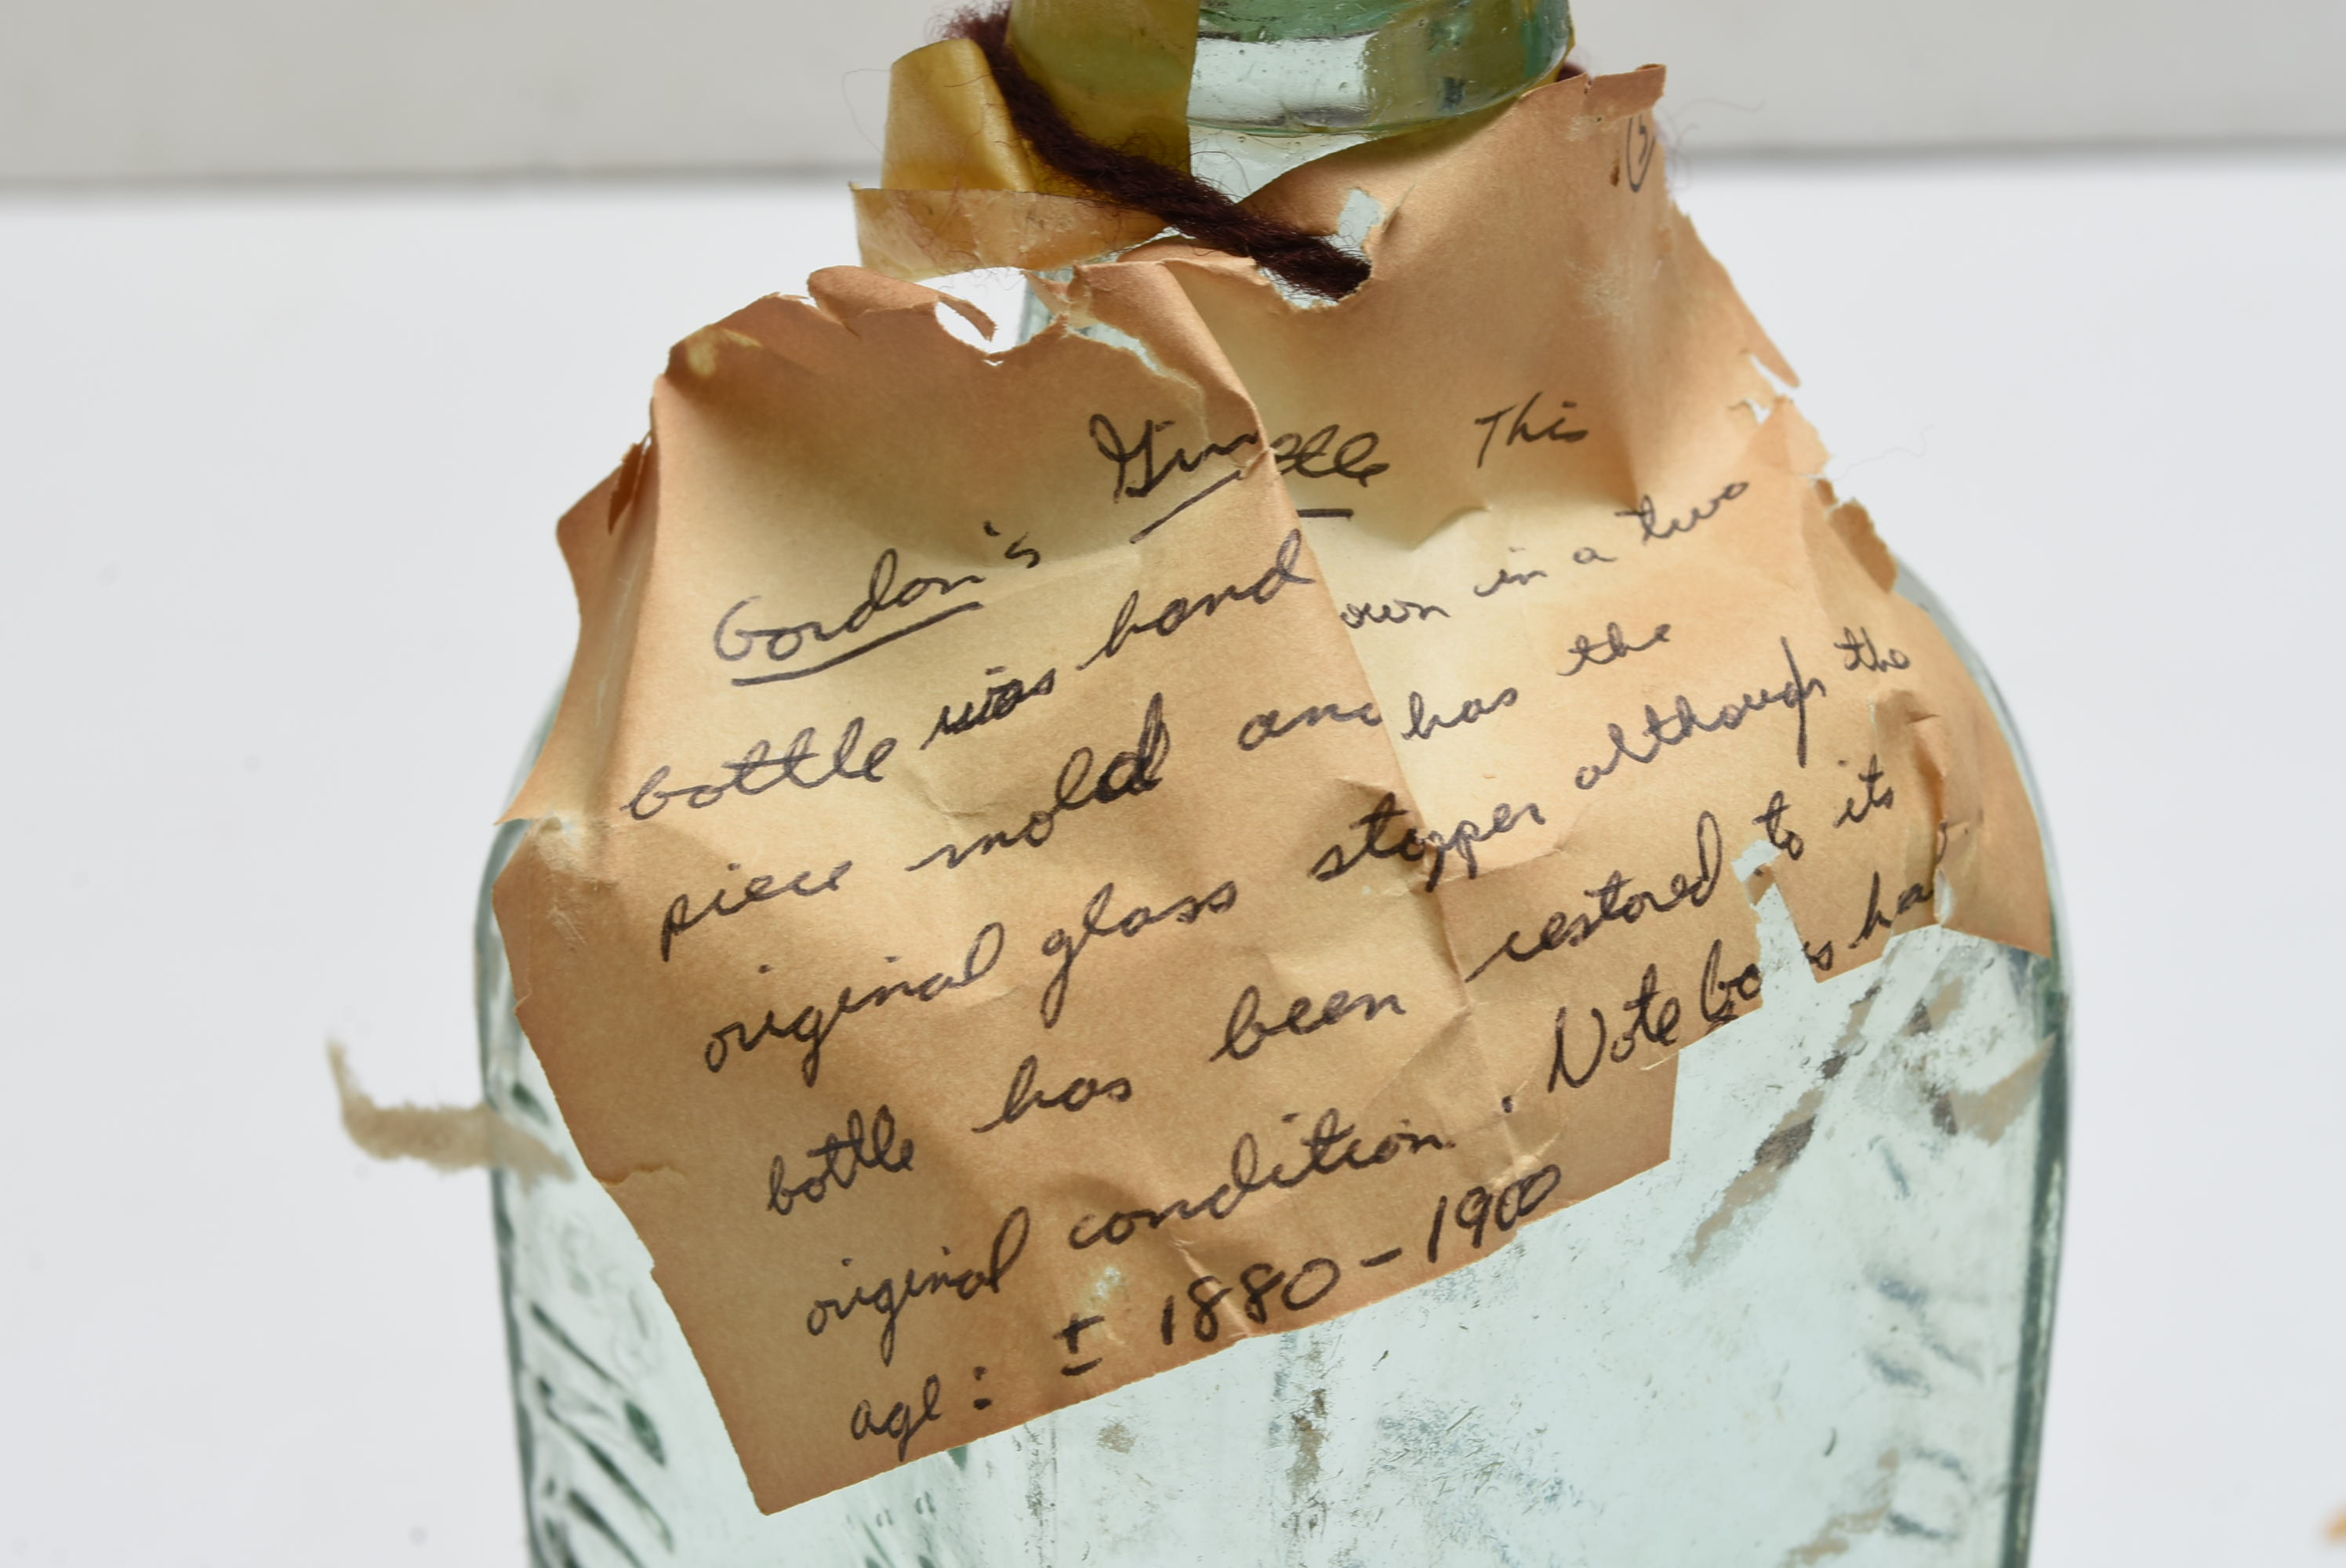 (3)
Gordon's Gin ttle This
bottle was hand own in a two
piece mold and has the
original glass stopper although the
bottle has been restored to its
original condition. Note bo s ha
age: ± 1880-1900